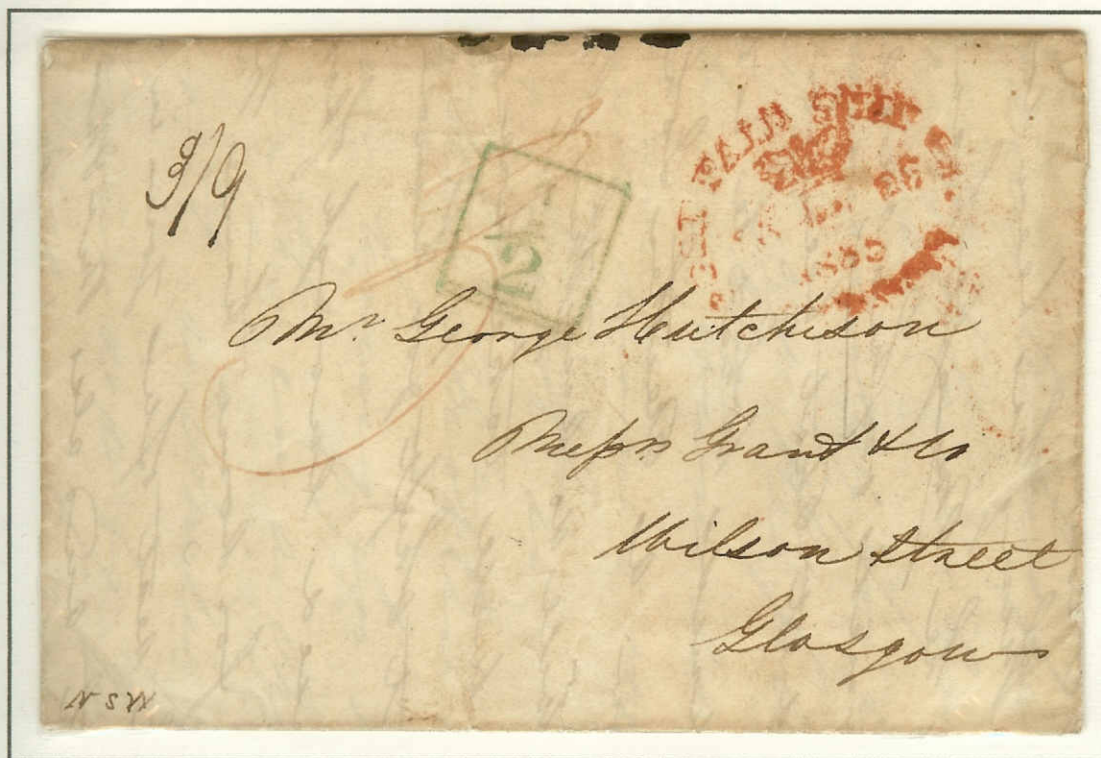 3/9
½
PAID SHIP
1839
Mr. George Hutcheson
Messrs Grant & Co
Wilson Street
Glasgow
NSW